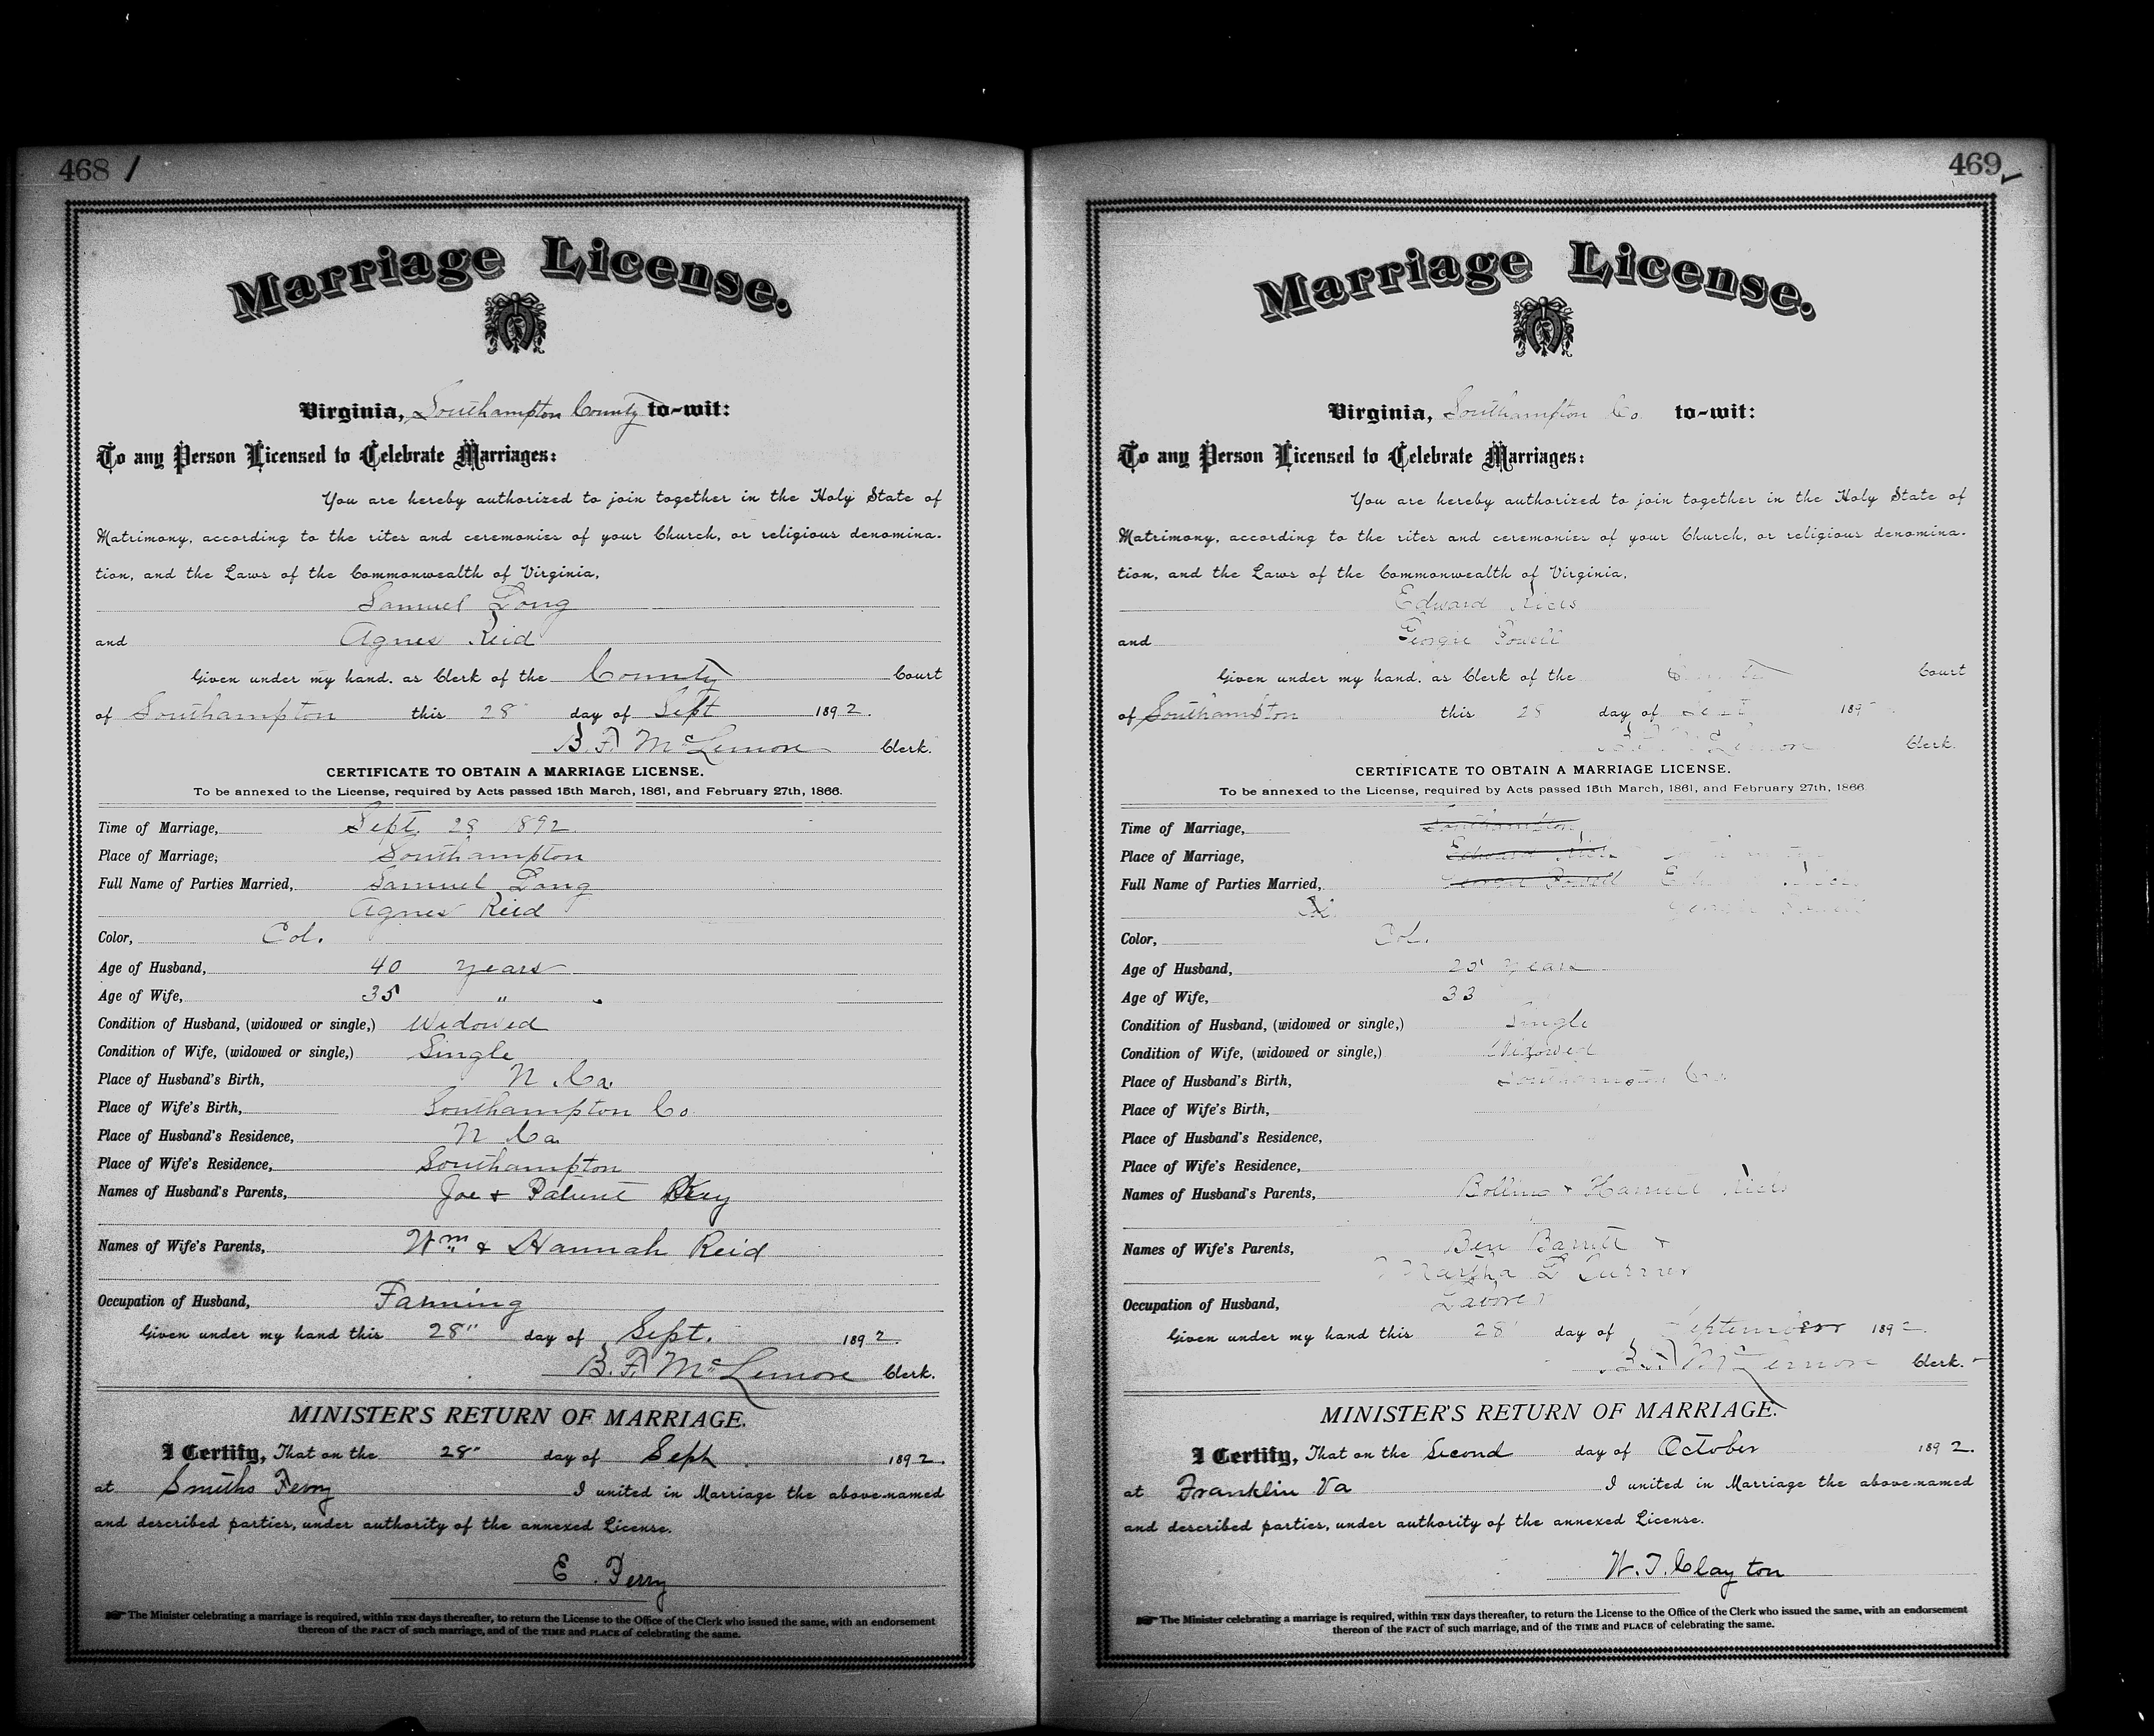 468
Marriage License.
Virginia, Southampton County to-wit:
To any Person Licensed to Celebrate Marriages:
You are hereby authorized to join together in the Holy State of
Matrimony, according to the rites and ceremonies of your Church, or religious denomina-
tion, and the Laws of the Commonwealth of Virginia,
Samuel Long
and Agnes Reid
Given under my hand, as Clerk of the County Court
of Southampton this 28 day of Sept 1892.
B. F. McLemore Clerk.
CERTIFICATE TO OBTAIN A MARRIAGE LICENSE.
To be annexed to the License, required by Acts passed 15th March, 1861, and February 27th, 1866.
Time of Marriage, Sept. 28 1892
Place of Marriage, Southampton
Full Name of Parties Married, Samuel Long
Agnes Reid
Color, Col.
Age of Husband, 40 years
Age of Wife, 35 "
Condition of Husband, (widowed or single,) Widowed
Condition of Wife, (widowed or single,) Single
Place of Husband's Birth, N. Ca.
Place of Wife's Birth, Southampton Co
Place of Husband's Residence, N Ca.
Place of Wife's Residence, Southampton
Names of Husband's Parents, Joe +
Names of Wife's Parents, Wm. & Hannah Reid
Occupation of Husband, Farming
Given under my hand this 28" day of Sept. 1892.
B. F. McLemore Clerk.
MINISTER'S RETURN OF MARRIAGE.
I Certify, That on the 28" day of Sept 1892.
at Smiths Ferry I united in Marriage the above-named
and described parties, under authority of the annexed License.
E. Perry
The Minister celebrating a marriage is required, within TEN days thereafter, to return the License to the Office of the Clerk who issued the same, with an endorsement
thereon of the FACT of such marriage, and of the TIME and PLACE of celebrating the same.
469
Marriage License.
Virginia, Southampton Co. to-wit:
To any Person Licensed to Celebrate Marriages:
You are hereby authorized to join together in the Holy State of
Matrimony, according to the rites and ceremonies of your Church, or religious denomina-
tion, and the Laws of the Commonwealth of Virginia,
Edward Ricks
and Georgie Powell
Given under my hand, as Clerk of the County Court
of Southampton this 28 day of Sept 189
B. F. McLemore Clerk.
CERTIFICATE TO OBTAIN A MARRIAGE LICENSE.
To be annexed to the License, required by Acts passed 15th March, 1861, and February 27th, 1866
Time of Marriage, Southampton
Place of Marriage, Edward Ricks
Full Name of Parties Married, Georgie Powell
Georgie Powell
Color, Col.
Age of Husband, 25 years
Age of Wife, 33
Condition of Husband, (widowed or single,) Single
Condition of Wife, (widowed or single,) Widowed
Place of Husband's Birth, Southampton Co.
Place of Wife's Birth,
Place of Husband's Residence,
Place of Wife's Residence,
Names of Husband's Parents, Bolling + Harriett Ricks
Names of Wife's Parents, Ben Barrett +
Martha L Turner
Occupation of Husband, Laborer
Given under my hand this 28 day of September 1892.
B. F. McLemore Clerk.
MINISTER'S RETURN OF MARRIAGE.
I Certify, That on the Second day of October 1892.
at Franklin Va I united in Marriage the above-named
and described parties, under authority of the annexed License.
W. T. Clayton
The Minister celebrating a marriage is required, within TEN days thereafter, to return the License to the Office of the Clerk who issued the same, with an endorsement
thereon of the FACT of such marriage, and of the TIME and PLACE of celebrating the same.